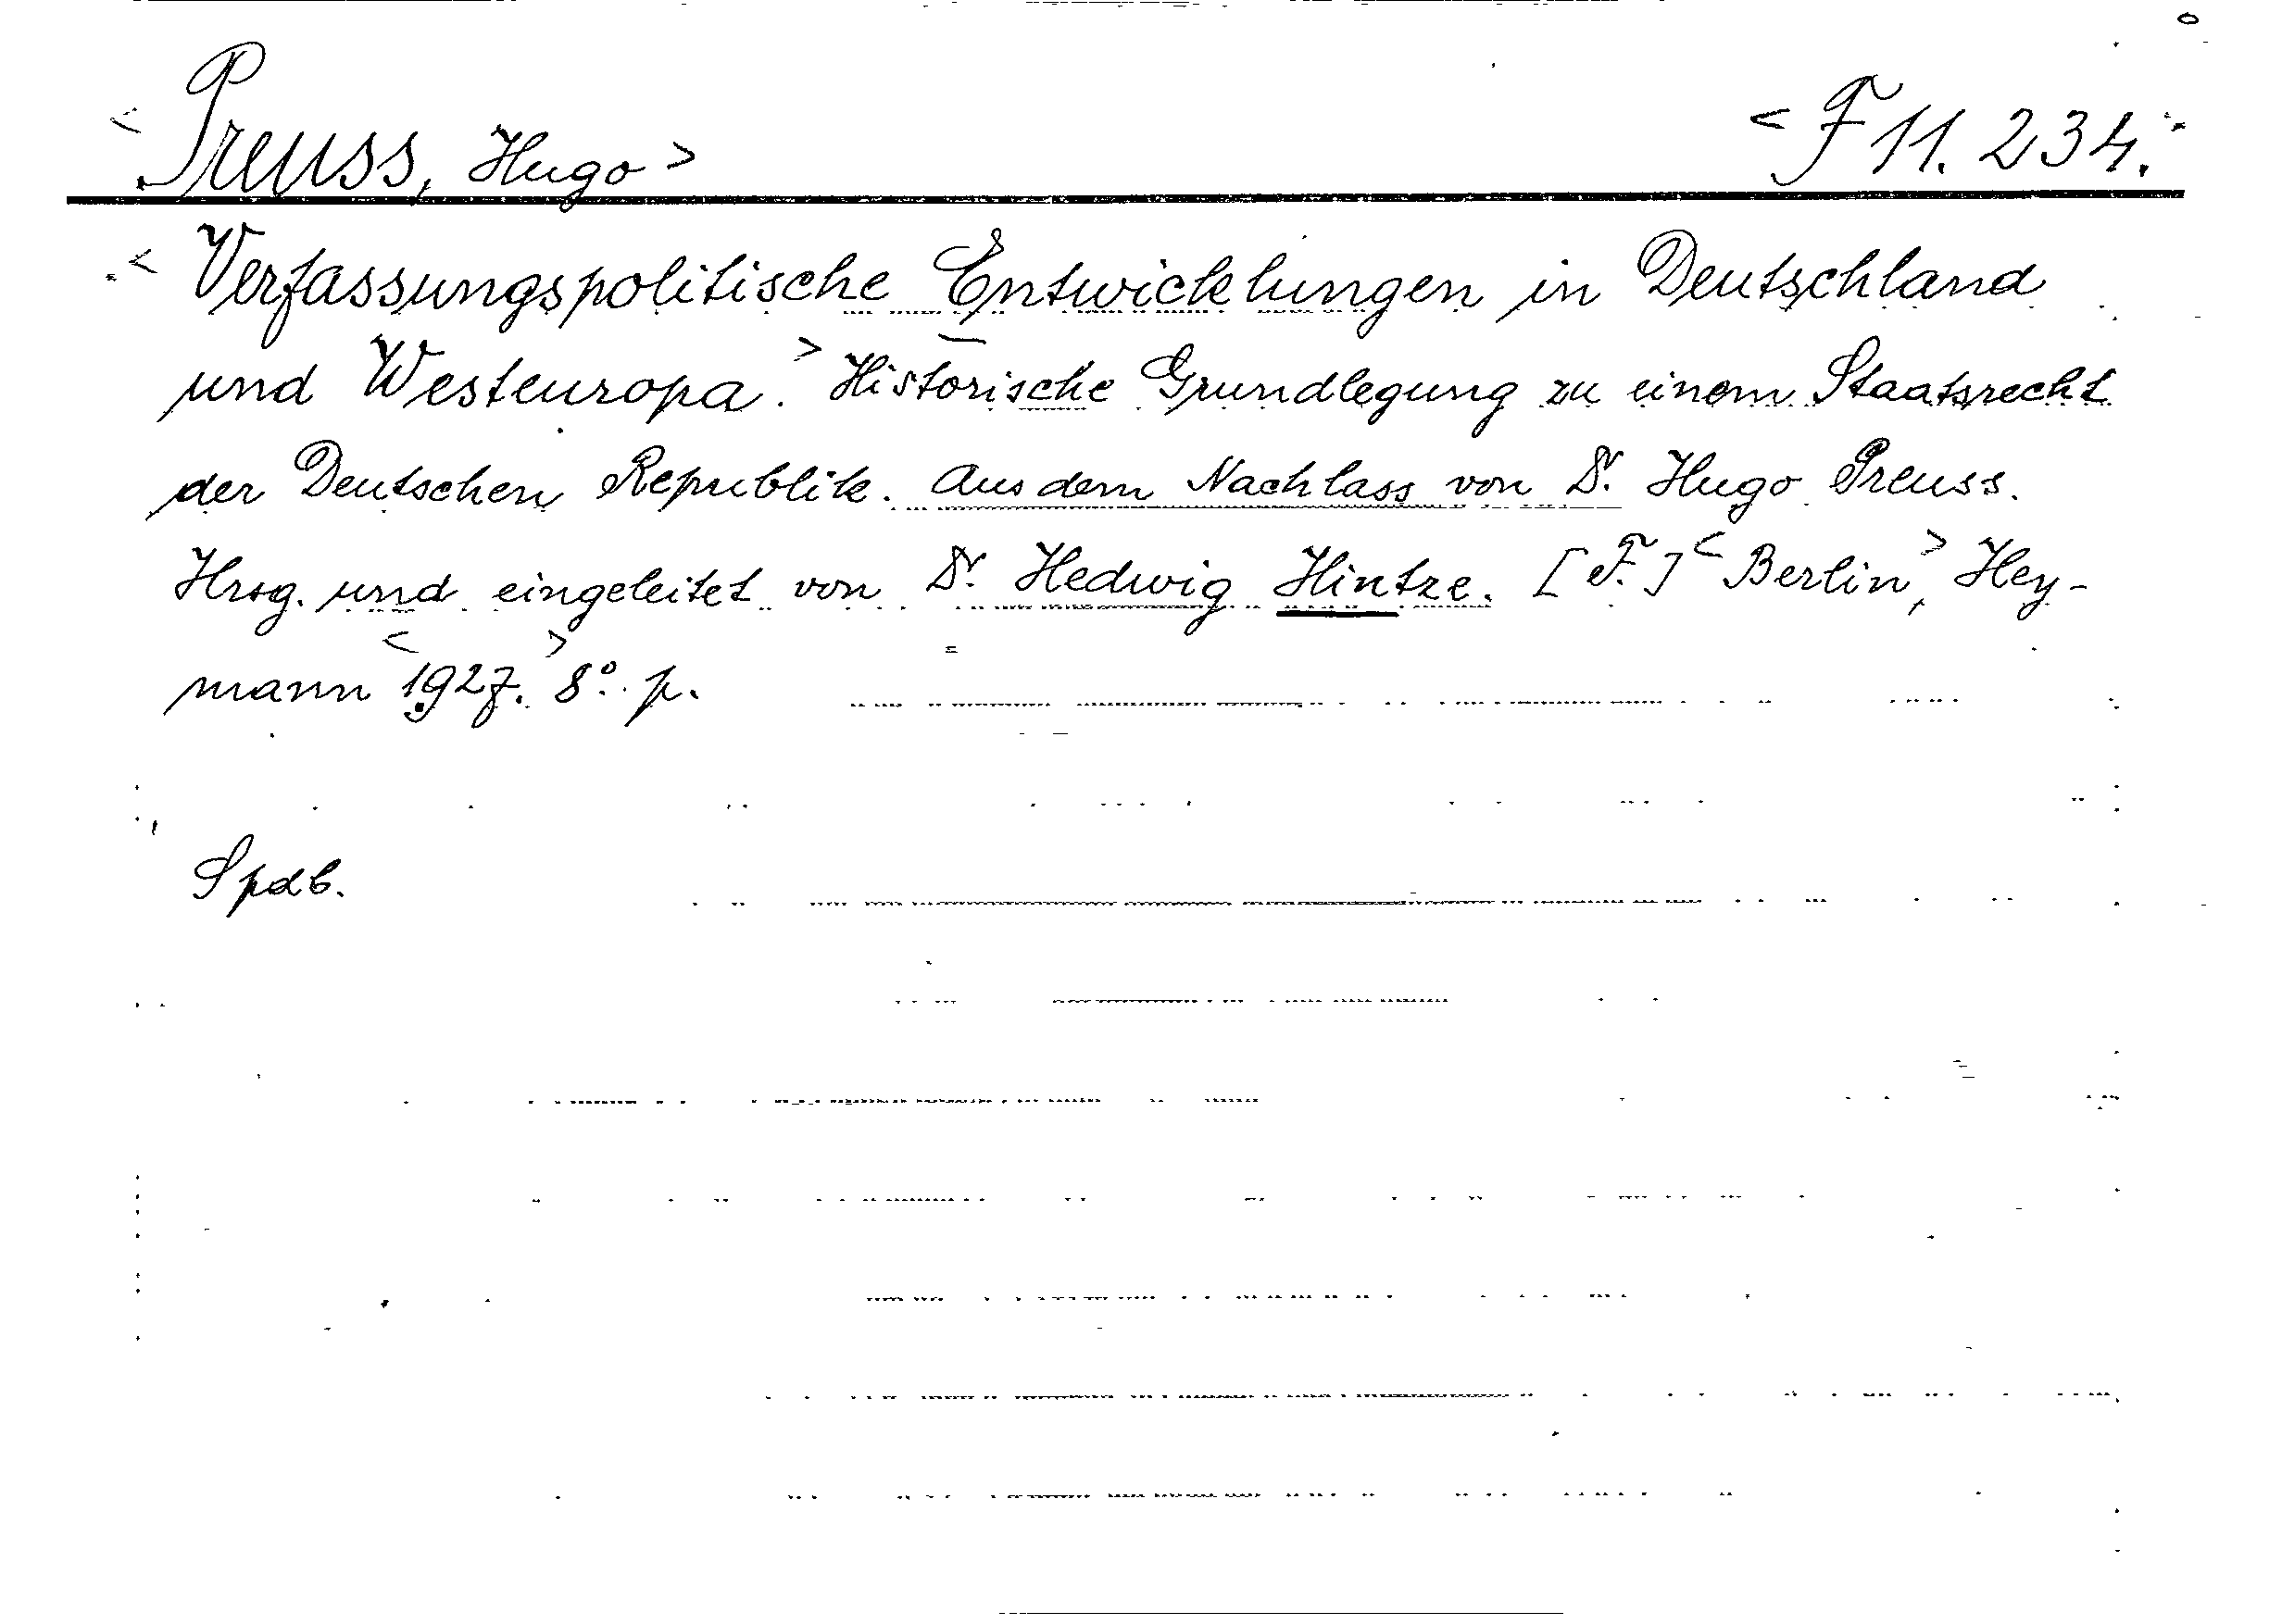 < Preuss, Hugo > < F 11. 234. >
< Verfassungspolitische Entwicklungen in Deutschland
und Westeuropa. > Historische Grundlegung zu einem Staatsrecht
der Deutschen Republik. Aus dem Nachlass von Dr. Hugo Preuss.
Hrsg. und eingeleitet von Dr. Hedwig Hintze. [F.] < Berlin, > Hey-
mann < 1927. > 8° p.
Spdb.